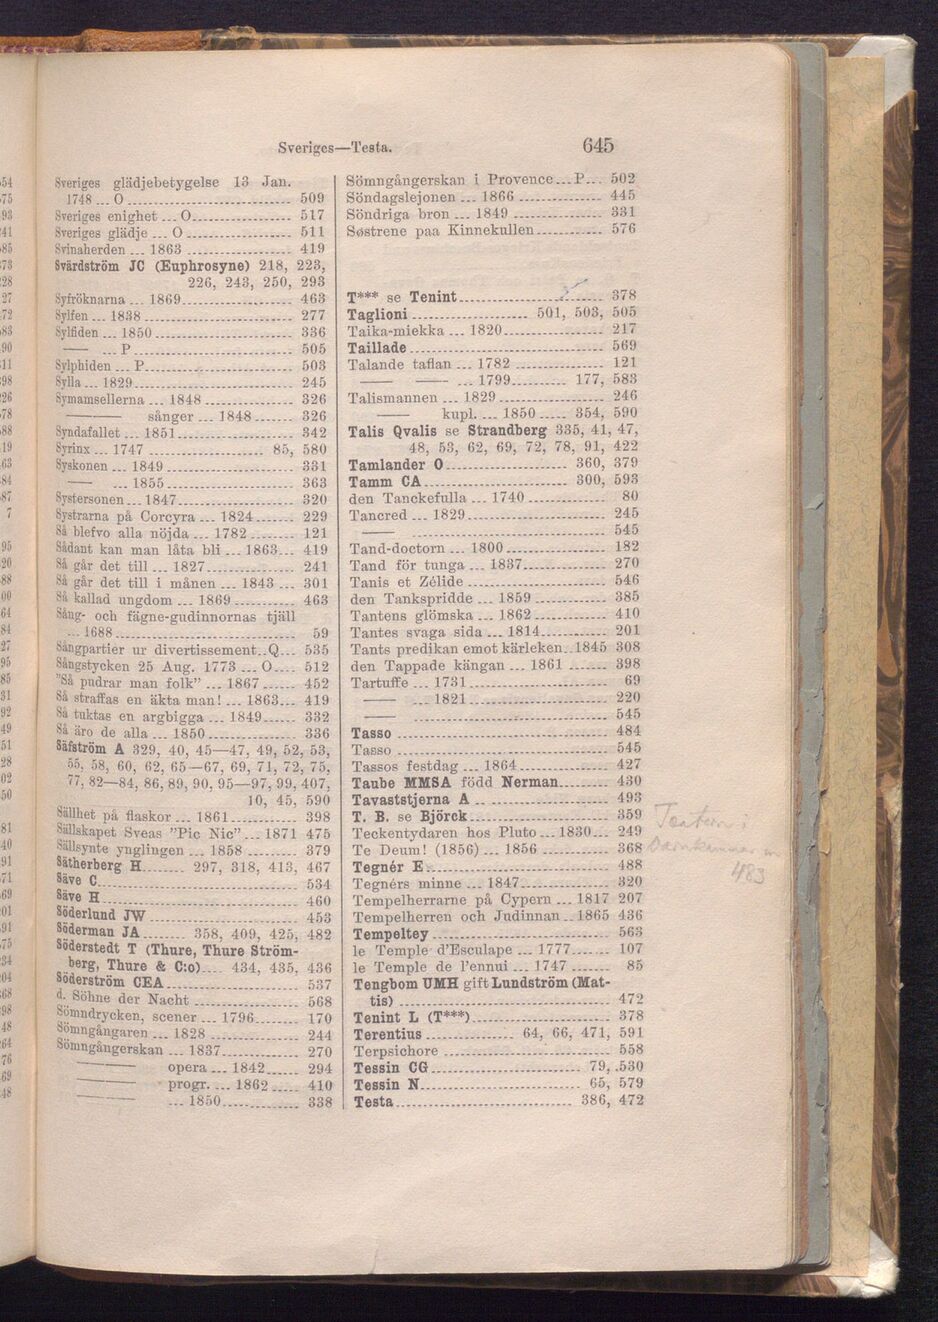 Sveriges—Testa. 645
Sveriges glädjebetygelse 13 Jan.
1748 ... O 509
Sveriges enighet ... O 517
Sveriges glädje ... O 511
Svinaherden ... 1863 419
Svärdström JC (Euphrosyne) 218, 223,
226, 243, 250, 293
Syfröknarna ... 1869 463
Sylfen ... 1838 277
Sylfiden ... 1850 336
—— ... P 505
Sylphiden ... P 503
Sylla ... 1829 245
Symamsellerna ... 1848 326
—— sånger ... 1848 326
Syndafallet ... 1851 342
Syrinx ... 1747 85, 580
Syskonen ... 1849 331
—— ... 1855 363
Systersonen ... 1847 320
Systrarna på Corcyra ... 1824 229
Så blefvo alla nöjda ... 1782 121
Sådant kan man låta bli ... 1863 419
Så går det till ... 1827 241
Så går det till i månen ... 1843 ... 301
Så kallad ungdom ... 1869 463
Sång- och fägne-gudinnornas tjäll
... 1688 59
Sångpartier ur divertissement..Q... 535
Sångstycken 25 Aug. 1773 ... O 512
"Så pudrar man folk" ... 1867 452
Så straffas en äkta man! ... 1863 419
Så tuktas en argbigga ... 1849 332
Så äro de alla ... 1850 336
Säfström A 329, 40, 45—47, 49, 52, 53,
55, 58, 60, 62, 65—67, 69, 71, 72, 75,
77, 82—84, 86, 89, 90, 95—97, 99, 407,
10, 45, 590
Sällhet på flaskor ... 1861 398
Sällskapet Sveas "Pic Nic" ... 1871 475
Sällsynte ynglingen ... 1858 379
Sätherberg H 297, 318, 413, 467
Säve C 534
Säve H 460
Söderlund JW 453
Söderman JA 358, 409, 425, 482
Söderstedt T (Thure, Thure Ström-
berg, Thure & C:o) 434, 435, 436
Söderström CEA 537
d. Söhne der Nacht 568
Sömndrycken, scener ... 1796 170
Sömngångaren ... 1828 244
Sömngångerskan ... 1837 270
—— opera ... 1842 294
—— progr. ... 1862 410
—— ... 1850 338
Sömngångerskan i Provence ... P ... 502
Söndagslejonen ... 1866 445
Söndriga bron ... 1849 331
Søstrene paa Kinnekullen 576
T*** se Tenint 378
Taglioni 501, 503, 505
Taika-miekka ... 1820 217
Taillade 569
Talande taflan ... 1782 121
—— —— ... 1799 177, 583
Talismannen ... 1829 246
—— kupl. ... 1850 354, 590
Talis Qvalis se Strandberg 335, 41, 47,
48, 53, 62, 69, 72, 78, 91, 422
Tamlander O 360, 379
Tamm CA 300, 593
den Tanckefulla ... 1740 80
Tancred ... 1829 245
—— 545
Tand-doctorn ... 1800 182
Tand för tunga ... 1837 270
Tanis et Zélide 546
den Tankspridde ... 1859 385
Tantens glömska ... 1862 410
Tantes svaga sida ... 1814 201
Tants predikan emot kärleken..1845 308
den Tappade kängan ... 1861 398
Tartuffe ... 1731 69
—— ... 1821 220
—— 545
Tasso 484
Tasso 545
Tassos festdag ... 1864 427
Taube MMSA född Nerman 430
Tavaststjerna A 493
T. B. se Björck 359
Teckentydaren hos Pluto ... 1830 249
Te Deum! (1856) ... 1856 368
Tegnér E 488
Tegnérs minne ... 1847 320
Tempelherrarne på Cypern ... 1817 207
Tempelherren och Judinnan ... 1865 436
Tempeltey 563
le Temple d'Esculape ... 1777 107
le Temple de l'ennui ... 1747 85
Tengbom UMH gift Lundström (Mat-
tis) 472
Tenint L (T***) 378
Terentius 64, 66, 471, 591
Terpsichore 558
Tessin CG 79, 530
Tessin N 65, 579
Testa 386, 472
Teatern i
483
54
75
93
41
85
73
28
27
72
83
90
11
98
26
78
88
19
63
84
87
7
95
20
88
00
64
84
27
95
85
31
92
49
51
28
02
50
81
40
91
71
69
01
91
75
34
04
68
98
48
64
76
69
48